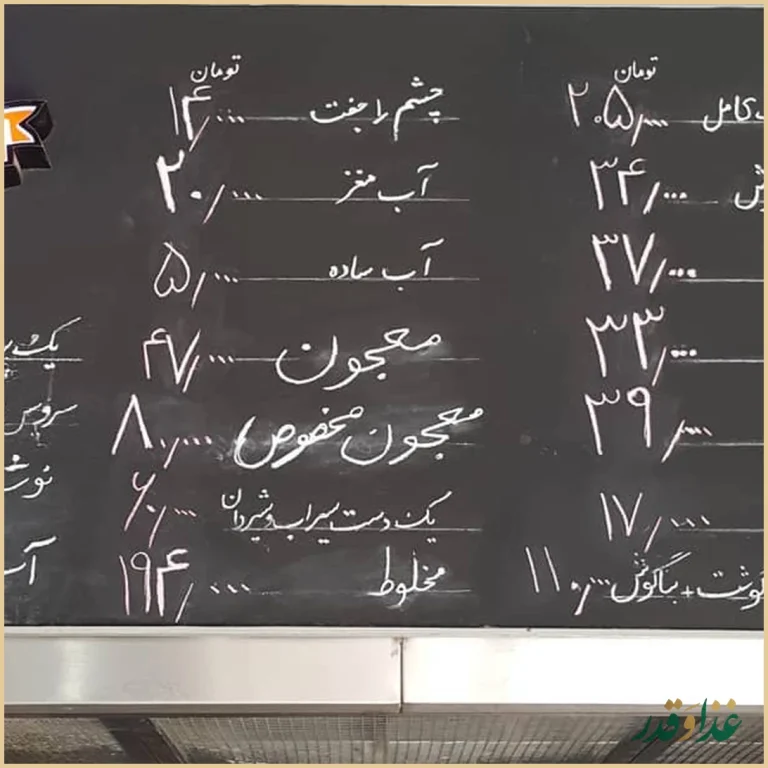 تومان
کامل ۲۰۵٫۰۰۰
۳۴٫۰۰۰
۳۷٫۰۰۰
۳۳٫۰۰۰
۳۹٫۰۰۰
۱۷٫۰۰۰
گوشت + بناگوش ۱۱۰٫۰۰۰
تومان
چشم را جفت ۱۴٫۰۰۰
آب مغز ۲۰٫۰۰۰
آب ساده ۵٫۰۰۰
معجون ۴۷٫۰۰۰
معجون مخصوص ۸۰٫۰۰۰
یک دست سیراب و شیردان ۶۰٫۰۰۰
مخلوط ۱۹۴٫۰۰۰
یک
سرویس
غذا و قدر